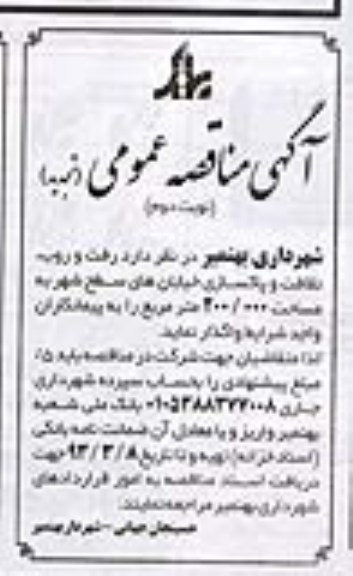 آگهی مناقصه عمومی (تجدید)
(نوبت دوم)
شهرداری بهنمیر در نظر دارد رفت و روب،
نظافت و پاکسازی خیابان های سطح شهر به
مساحت ۲۰۰/۰۰۰ متر مربع را به پیمانکاران
واجد شرایط واگذار نماید.
لذا متقاضیان جهت شرکت در مناقصه باید ۵٪
مبلغ پیشنهادی را بحساب سپرده شهرداری
جاری ۰۱۰۵۳۸۸۳۷۷۰۰۸ بانک ملی شعبه
بهنمیر واریز و یا معادل آن ضمانت نامه بانکی
(اسناد خزانه) تهیه و تا تاریخ ۹۳/۳/۸ جهت
دریافت اسناد مناقصه به امور قراردادهای
شهرداری بهنمیر مراجعه نمایند.
شهردار بهنمیر